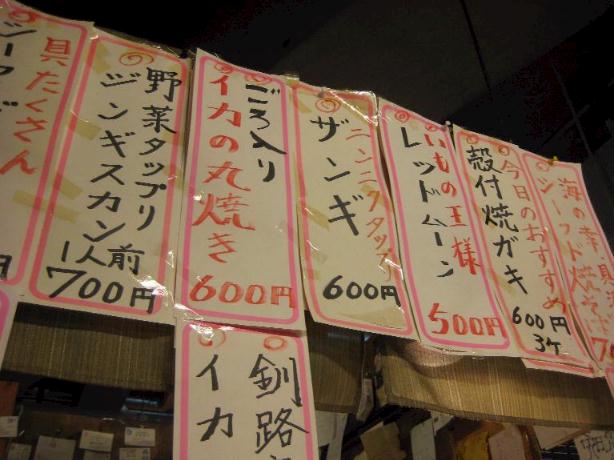 具たくさん
野菜タップリ
ジンギスカン
1人前
700円
ごろ入り
イカの丸焼き
600円
ニンニクタップリ
ザンギ
600円
いもの王様
レッドムーン
500円
今日のおすすめ
殻付焼ガキ
600円
3ケ
海の幸
シーフード焼そば
釧路
イカ